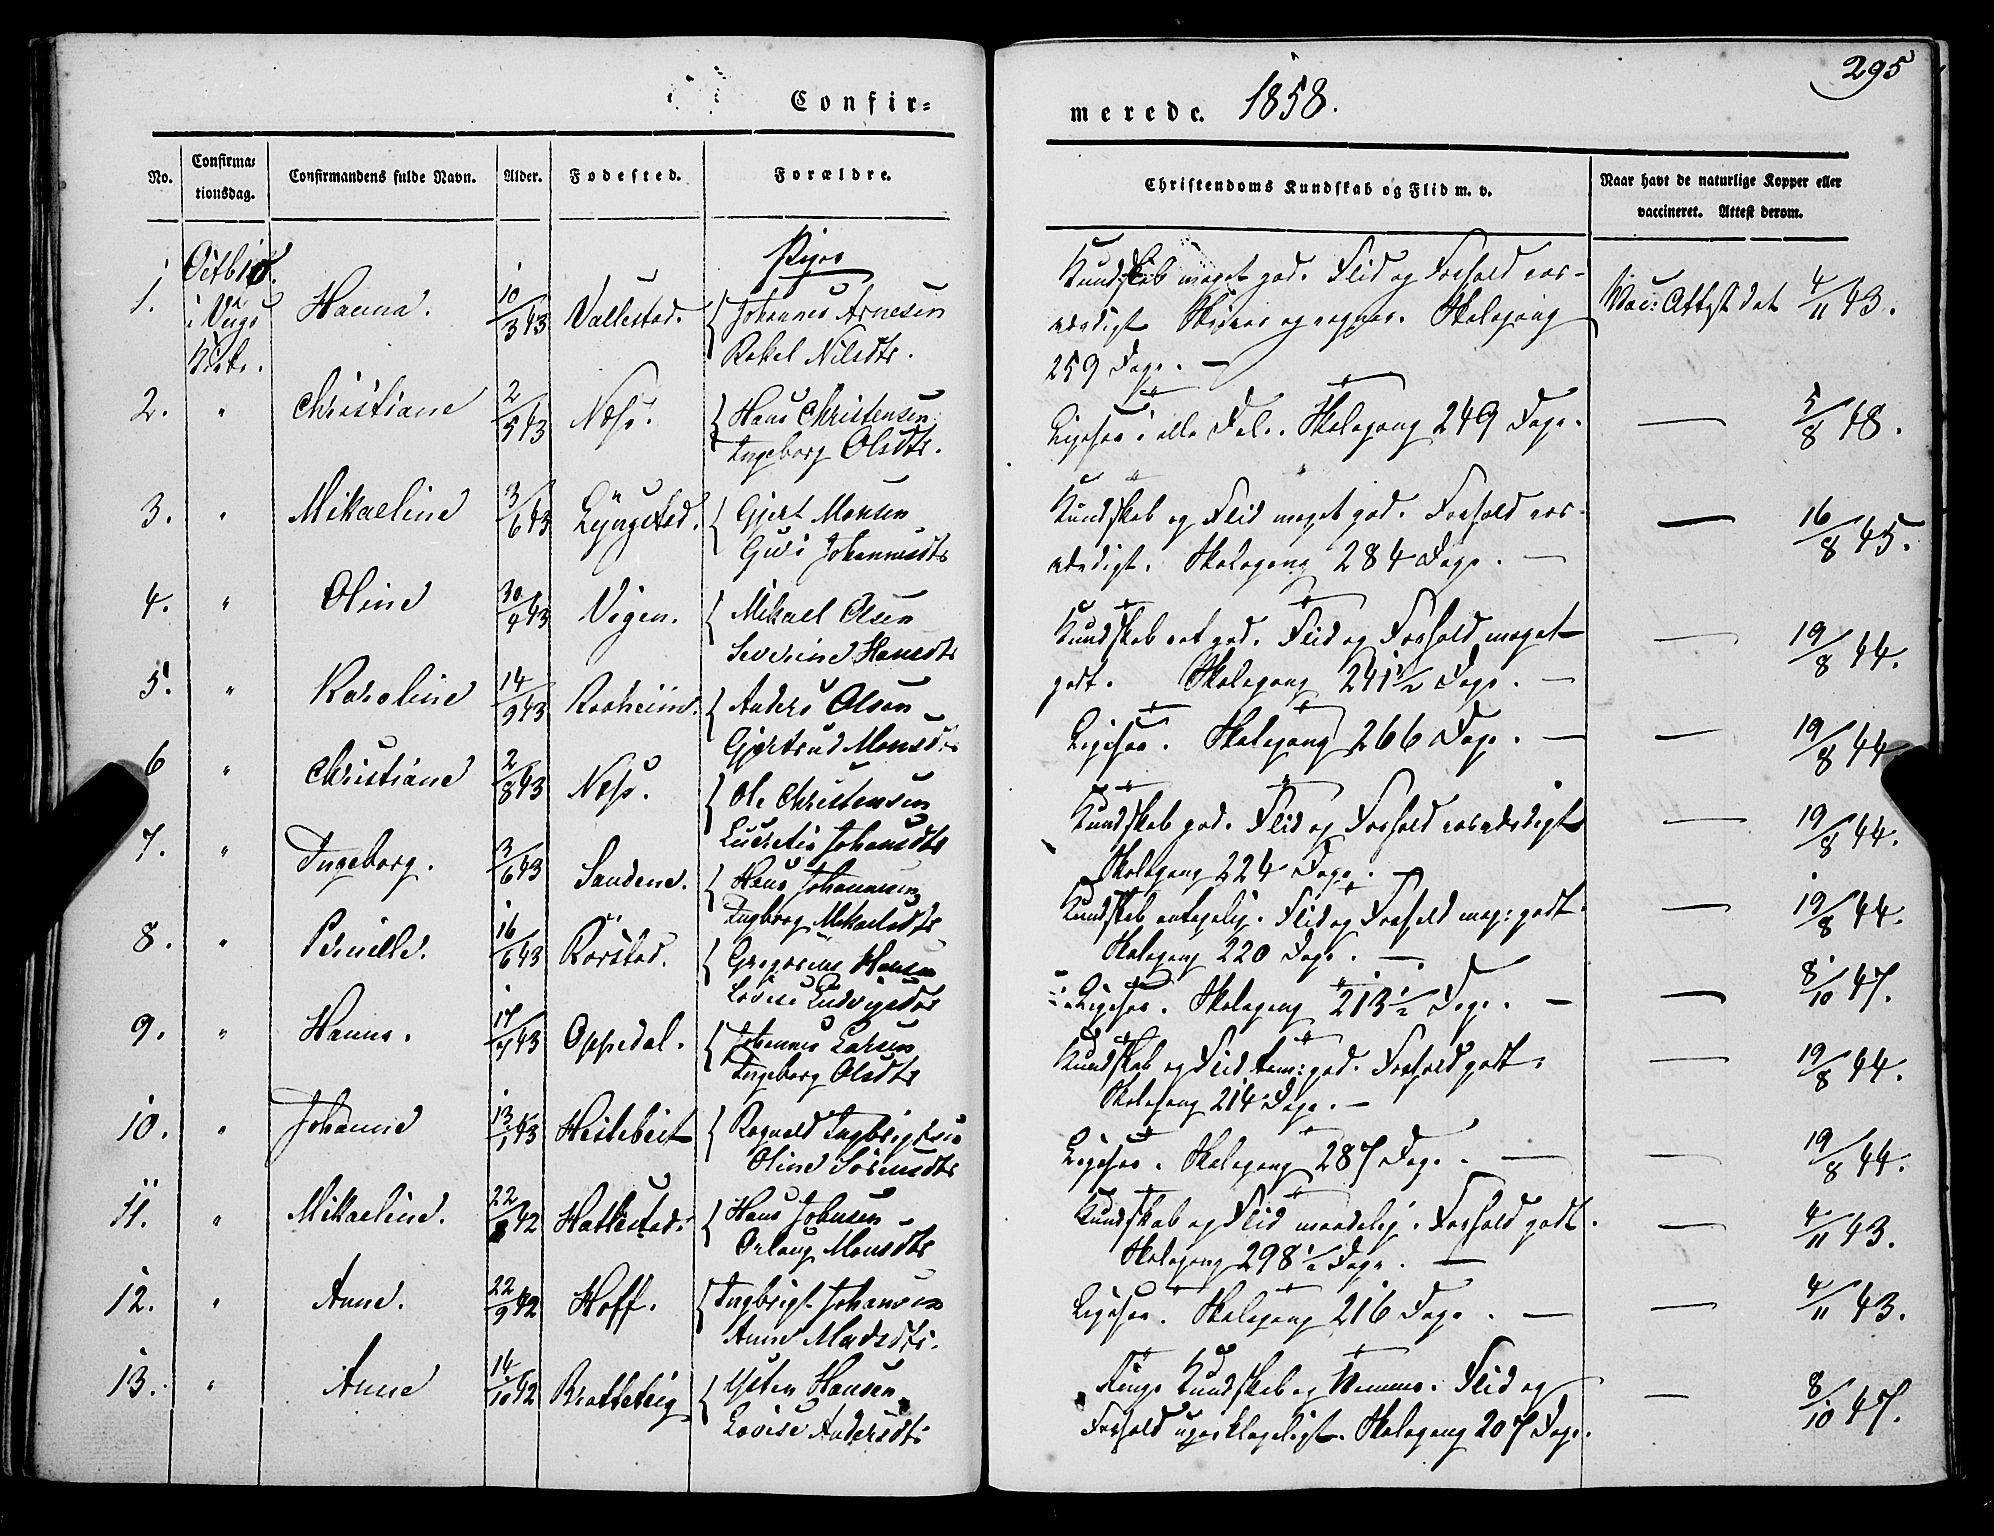 295
Confir=
merede. 1858.
No.
Confirma=
tionsdag.
Confirmandens fulde Navn.
Alder.
Fødested.
Forældre.
Christendoms Kundskab og Flid m. v.
Naar havt de naturlige Kopper eller
vaccineret. Attest derom.
Piger
1. Octb 10. i Kirke. Hanna. 10/3 43 Vallestad. { Johannes Arnesen
Rakel Nilsdtr.
Kundskab meget god. Flid og Forhold roes-
værdigt. Skriver og regner. Skolegang
259 Dage. —
Vac: Attest dat 4/11 43.
2. " Christiane 2/5 43 Næss. { Hans Christensen
Ingeborg Olsdtr.
Ligesaa i alle Dele. Skolegang 249 Dage.
— 5/8 48.
3. " Mikaeline 3/6 43 Lyngstad. { Gjert Monsen
Guri Johannesdtr
Kundskab og Flid meget god. Forhold roes-
værdigt. Skolegang 284 Dage. —
— 16/8 45.
4. " Oline 30/4 43 Vigen. { Mikael Olsen
Severine Hansdtr
Kundskab ret god. Flid og Forhold meget
godt. Skolegang 241½ Dage. —
— 19/8 44.
5. " Karoline 14/9 43 Roeheim. { Anders Olsen
Gjertrud Monsdtr
Ligesaa. Skolegang 266 Dage. —
— 19/8 44
6 " Christiane 2/8 43 Næss. { Ole Christensen
Lucretia Johansdtr
Kundskab god. Flid og Forhold roesværdigt
Skolegang 224 Dage. —
— 19/8 44.
7. " Ingeborg. 3/6 43 Sandene. { Hans Johannesen
Ingborg Mikaelsdtr
Kundskab antagelig. Flid og Forhold meg: godt.
Skolegang 220 Dage. —
— 19/8 44.
8. " Pernille. 16/6 43 Rørstad. { Gregorius Hansen
Lovise Ludvigsdtr
Ligesaa. Skolegang 213½ Dage. —
— 8/10 47.
9. " Hanna. 17/7 43 Oppedal. { Johannes Larsen
Ingeborg Olsdtr
Kundskab og Flid tem: god. Forhold godt.
Skolegang 214 Dage. —
— 19/8 44.
10. " Johanne 13/1 43 Hestebeit { Ragnald Ingbrigtsen
Oline Sørensdtr
Ligesaa. Skolegang 287 Dage. —
— 19/8 44.
11. " Mikaeline. 22/8 42 Hatlestad. { Hans Johnsen
Orlaug Monsdtr
Kundskab og Flid maadelig. Forhold godt.
Skolegang 298½ Dage. —
— 4/11 43.
12. " Anne. 22/9 42 Hoff. { Ingbrigt Johansen
Anne Madsdtr.
Ligesaa. Skolegang 216 Dage. —
— 4/11 43.
13. " Anne 14/10 42 Bratteteig { Østen Hansen
Lovise Andersdtr
Ringe Kundskab og Nemme. Flid og
Forhold upaaklageligt. Skolegang 207 Dage.
— 8/10 47.